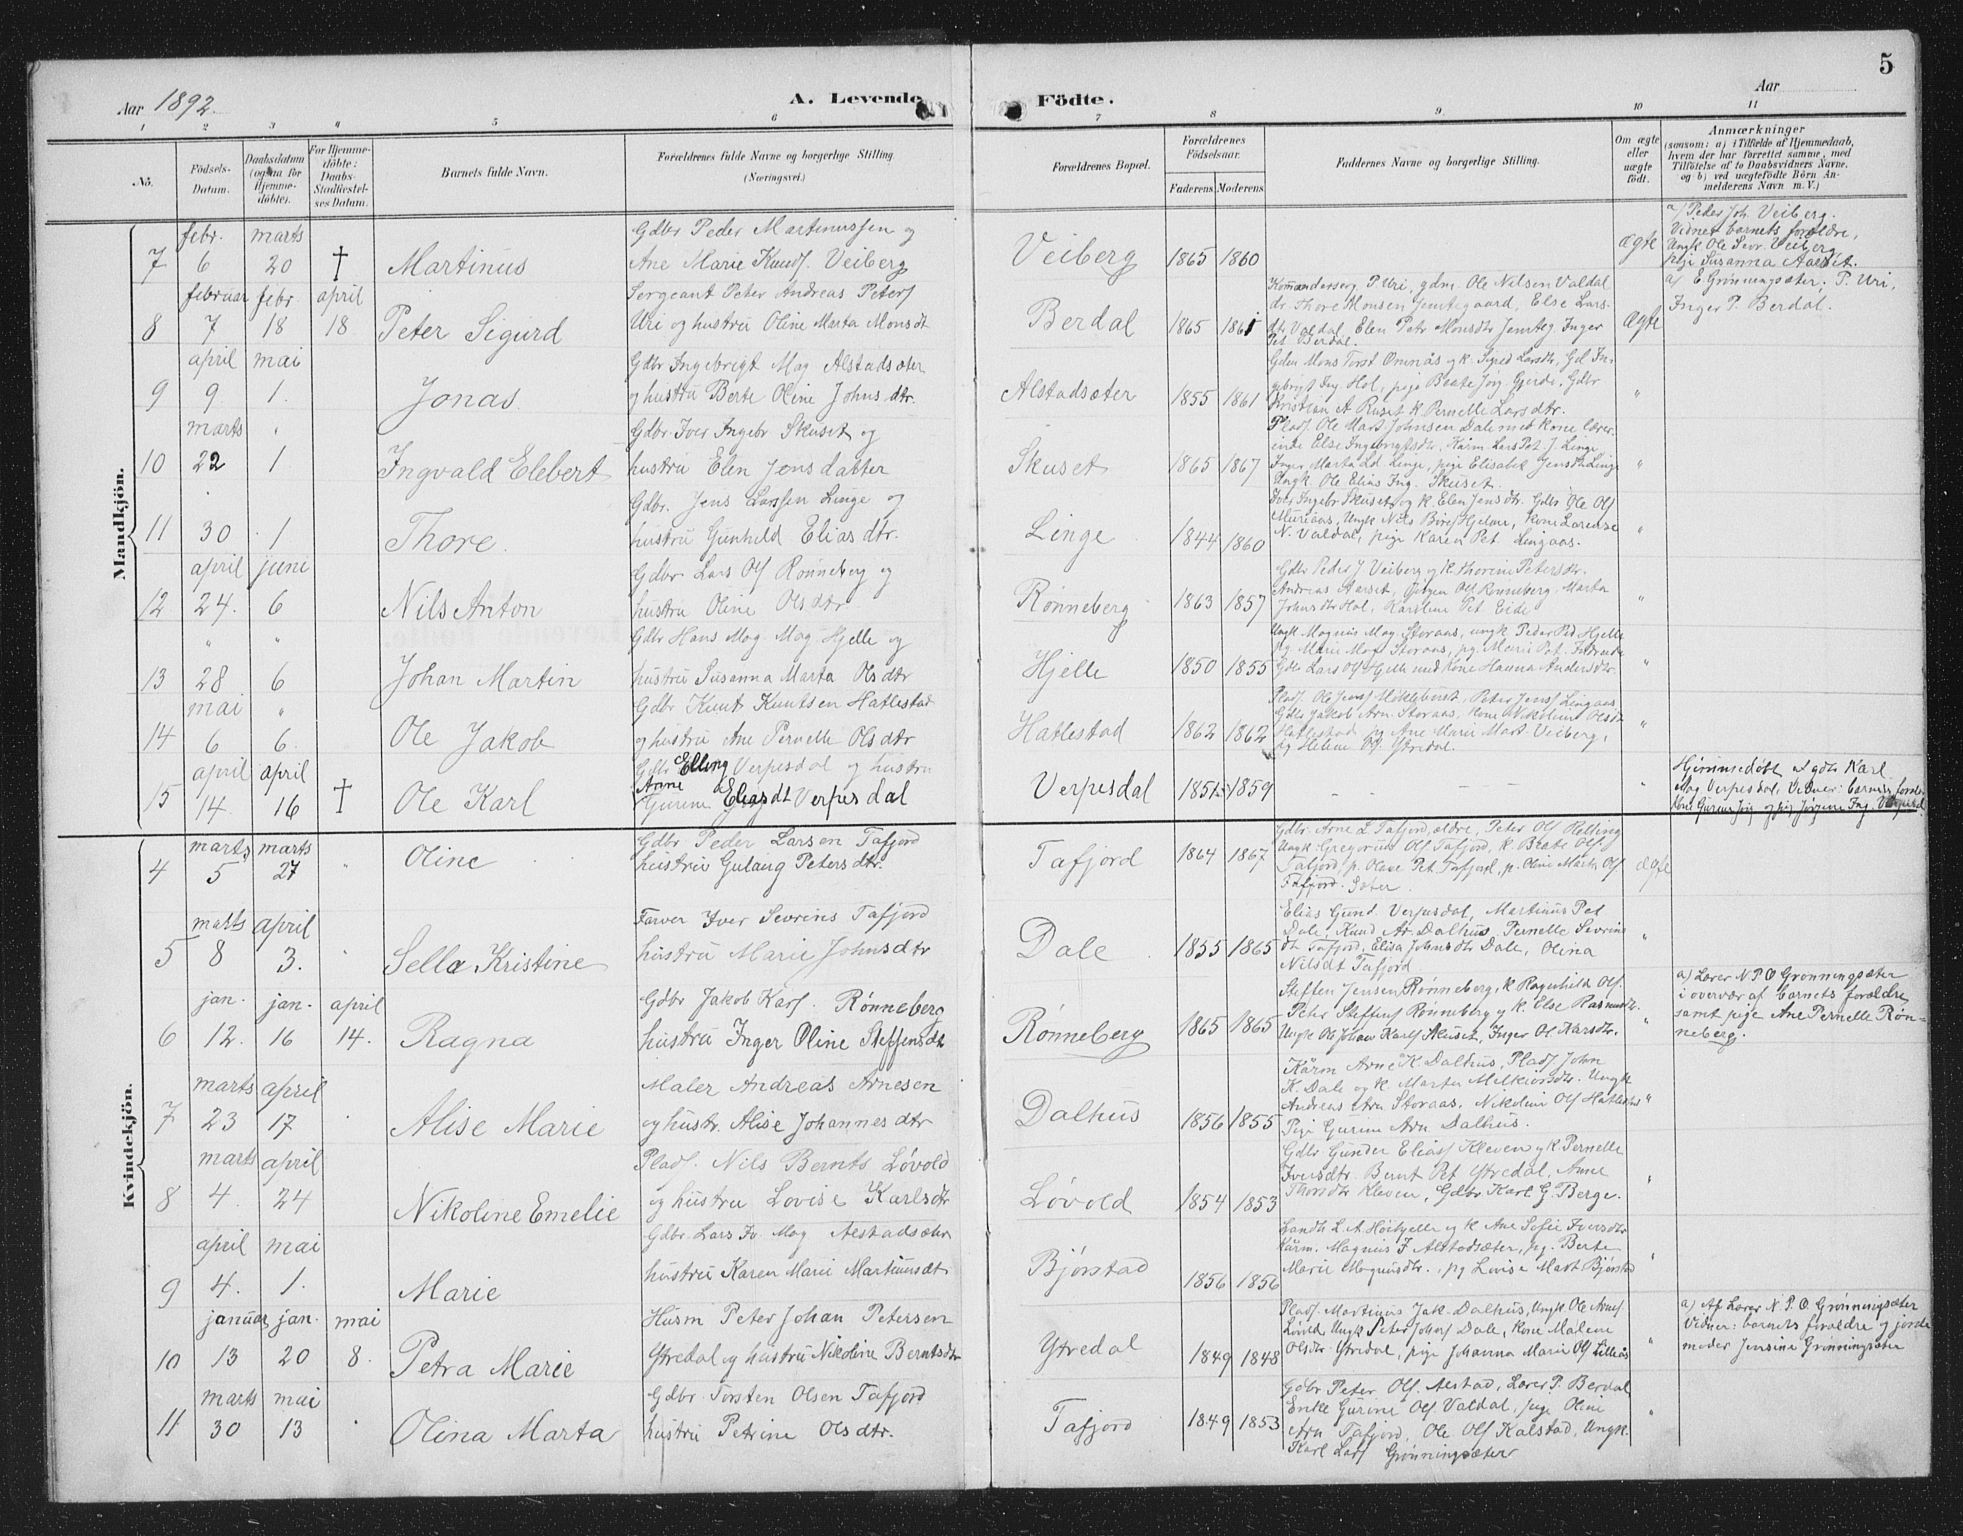 5
Aar 1892.
A. Levende
Födte.
Aar
1 2 3 4 5 6 7 8 9 10 11
No.
Födsels-Datum.
Daabsdatum (ogsaa for Hjemmedöbte).
For Hjemmedöbte: Daabs-Stadfæstelses Datum.
Barnets fulde Navn.
Forældrenes fulde Navne og borgerlige Stilling
(Næringsvei.)
Forældrenes Bopæl.
Forældrenes Födselsaar.
Faderens Moderens
Faddernes Navne og borgerlige Stilling.
Om ægte eller uægte födt.
Anmærkninger
(saasom: a) i Tilfælde af Hjemmedaab,
hvem der har forrettet samme, med
Tilföielse af to Daabsvidners Navne,
og b) ved uægtefödte Börn An-
melderens Navn m. V.)
Mandkjön.
7 febr. 6 marts 20 † Martinus
Gdbr Peder Martinussen og
Ane Marie Knuds. Veiberg
Veiberg 1865 1860 ægte
a) Peder Joh. Veiberg.
Vidner barnets forældre,
Ungk Ole Sevr. Veiberg
pige Susanna Aarset.
8 februar 7 febr. 18 april 18 Peter Sigurd
Sergeant Peter Andreas Peters
Uri og hustru Oline Marta Monsdt
Berdal 1865 1861
Kommanderserg. P Uri, gdm. Ole Nilsen Valdal
dr. Thore Monsen Jemtegaard, Else Lars-
dtr Valdal, Elen Petr Monsdtr Jemteg Inger
Pet. Berdal.
ægte
a) E. Grønningsæter, P. Uri,
Inger P. Berdal.
9 april 9 mai 1. Jonas
Gdbr Ingebrigt Mag Alstadsæter
og hustru Berte Oline Johns dtr.
Alstadsæter 1855 1861
Kristian A Ruset k. Pernelle Larsdtr.
"
10 marts 22 " 1 Ingvald Elebert
Gdbr. Iver Ingebr Skuset og
hustru Elen Jensdatter
Skuset 1865 1867
Plads. Ole Mart Johnsen Dale med kone lærer-
inde Else Ingebrigtsdtr, Kårm Lars Pet J. Linge
Ungk Ole Elias Ing. Skuset.
"
11 " 30 1 Thore.
Gdbr. Jens Larssen Linge og
hustru Gunhild Elias dtr.
Linge 1844 1860
Iver Ingebr Skuset og k Elen Jensdtr. Gdbr Ole Ols
N. Valdal, pige Karen Pet Lingaas.
"
12 april 24. juni 6 Nils Anton
Gdbr Lars Ols Rønneberg og
hustru Oline Olsdtr
Rønneberg 1863 1857
Gdbr Peder J Veiberg og k Thorine Petersdtr.
Andreas Aarset, Jørgen Ols Rønneberg, Marta
Johnsdtr Hol, Karoline Pet Eide
"
13 " 28 " 6 Johan Martin
Gdbr Hans Mag. Mag Hjelle og
hustru Susanna Marta Olsdtr
Hjelle 1850 1855
Ungk Magnus Mag. Storaas, ungk Peder Ped Hjelle
Gdbr Lars Ols Hjelle med kone Hanna Andersdtr.
"
14 mai 6 " 6. Ole Jakob
Gdbr Knut Knutsen Hatlestad
og hustru Ane Pernelle Olsdtr
Hatlestad 1862 1862
Plads. Ole Jens Møkleberst, Peter Jens Lingaas,
Gdbr Jakob Arn. Storaas, kone Nikoline Olsdt
Hatlestad og Ane Marie Mart. Veiberg,
og Helene Ols Ytredal.
"
15 april 14. april 16 † Ole Karl
Gdbr Elling Verpesdal og hustru
Anne
Gurine Eliasdt Verpesdal
Verpesdal 1851 1859
- - - -
"
Hjemmedøbt af gdbr Karl
Mag Verpesdal. Vidner: barnets forældre
Kvindekjön.
4 marts 5 marts 27 " Oline
Gdbr Peder Larsen Tafjord
hustru Gulaug Petersdtr.
Tafjord 1864 1867
Gdbr. Arne L Tafjord, ældre, Peter Ols Relling
Ungk. Gregorius Ols Tafjord, k. Beate Ols
Tafjord, p. Olave Pet Tafjord, p. Oline Marta Ols
Tafjord. Sæter.
ægte
5 marts 8 april 3. " Sella Kristine
Farver Iver Sevrins Tafjord
hustru Marie Johnsdtr
Dale 1855 1865
Elias Gund. Verpesdal, Martinus Pet
Dale, Knud Ar. Dalhus, Pernelle Sevrins
dt Tafjord, Elisa Johnsdtr Dale, Olina
Nilsdt Tafjord
"
6 jan. 12. jan. 16 april 14. Ragna
Gdbr Jakob Kars. Rønneberg
hustru Inger Oline Steffensdt
Rønneberg 1865 1865
Steffen Jensen Rønneberg, k Ragnhild Ols.
Peter Steffens Rønneberg og k. Else Rasmusdtr.
Ungk Ole Johan Karls Skuset, Inger Ol Karsdtr.
"
a) Lærer N. P. O Grønningsæter
i overvær af barnets forældre,
samt pige Ane Pernelle Røn-
neberg.
7 marts 23 april 17 " Alise Marie
Maler Andreas Arnesen
og hustr. Alise Johannes dtr
Dalhus 1856 1855
Kårm Arne K Dalhus, Plads John
K. Dale og k. Marta Melkiorsdtr. Ungk
Andreas Arn Storaas. Nikoline Ols Hatlestad
Pige Gurine Arn Dalhus.
"
8 marts 4. april 24 Nikoline Emelie
Plads. Nils Bernts Løvold
og hustru Lovise Karlsdtr
Løvold 1854 1853
Gdbr. Gunder Elias Kleven og k. Pernelle
Iversdtr. Bernt Pet Ytredal, Anne
Thorsdtr Kleven, Gdbr. Karl G. Berge.
"
9 april 4. mai 1. Marie
Gdbr. Lars Iv. Mag Alstadsæter
hustru Karen Marie Martinusdt
Bjørstad 1856 1856
Landh. L. A. Høibjelle og k Ane Sofie Iversdtr
Kårm. Magnus I Alstadsæter, pg. Berte
Marie Magnusdtr., pg Lovise Mart Bjørstad
"
10 januar 13 jan. 20 mai 8. Petra Marie
Husm Peter Johan Petersen
Ytredal og hustru Nikoline Berntsdtr
Ytredal 1849 1848
Plads. Martinus Jak. Dalhus, Ungk. Ole Arnes
Løvold, Ungk Peter Johs Dale, kone Malene
Olsdtr Ytredal, pige Johanna Marie Ols Lillebø
"
a) Af Lærer N. P. O. Grønningsæter
Vidner: barnets forældre og jorde
moder Jensine Grønningsæter
11 marts 30 mai 13 " Olina Marta
Gdbr. Torsten Olsen Tafjord
hustru Petrine Olsdtr.
Tafjord 1849 1853
Gdbr Peter Ols. Alstad, Lærer P. Berdal
Enke Gurine Ols Valdal, pige Oline
Arn Tafjord, Ole Ols Kalstad, Ungk.
Karl Lars Grønningsæter
"